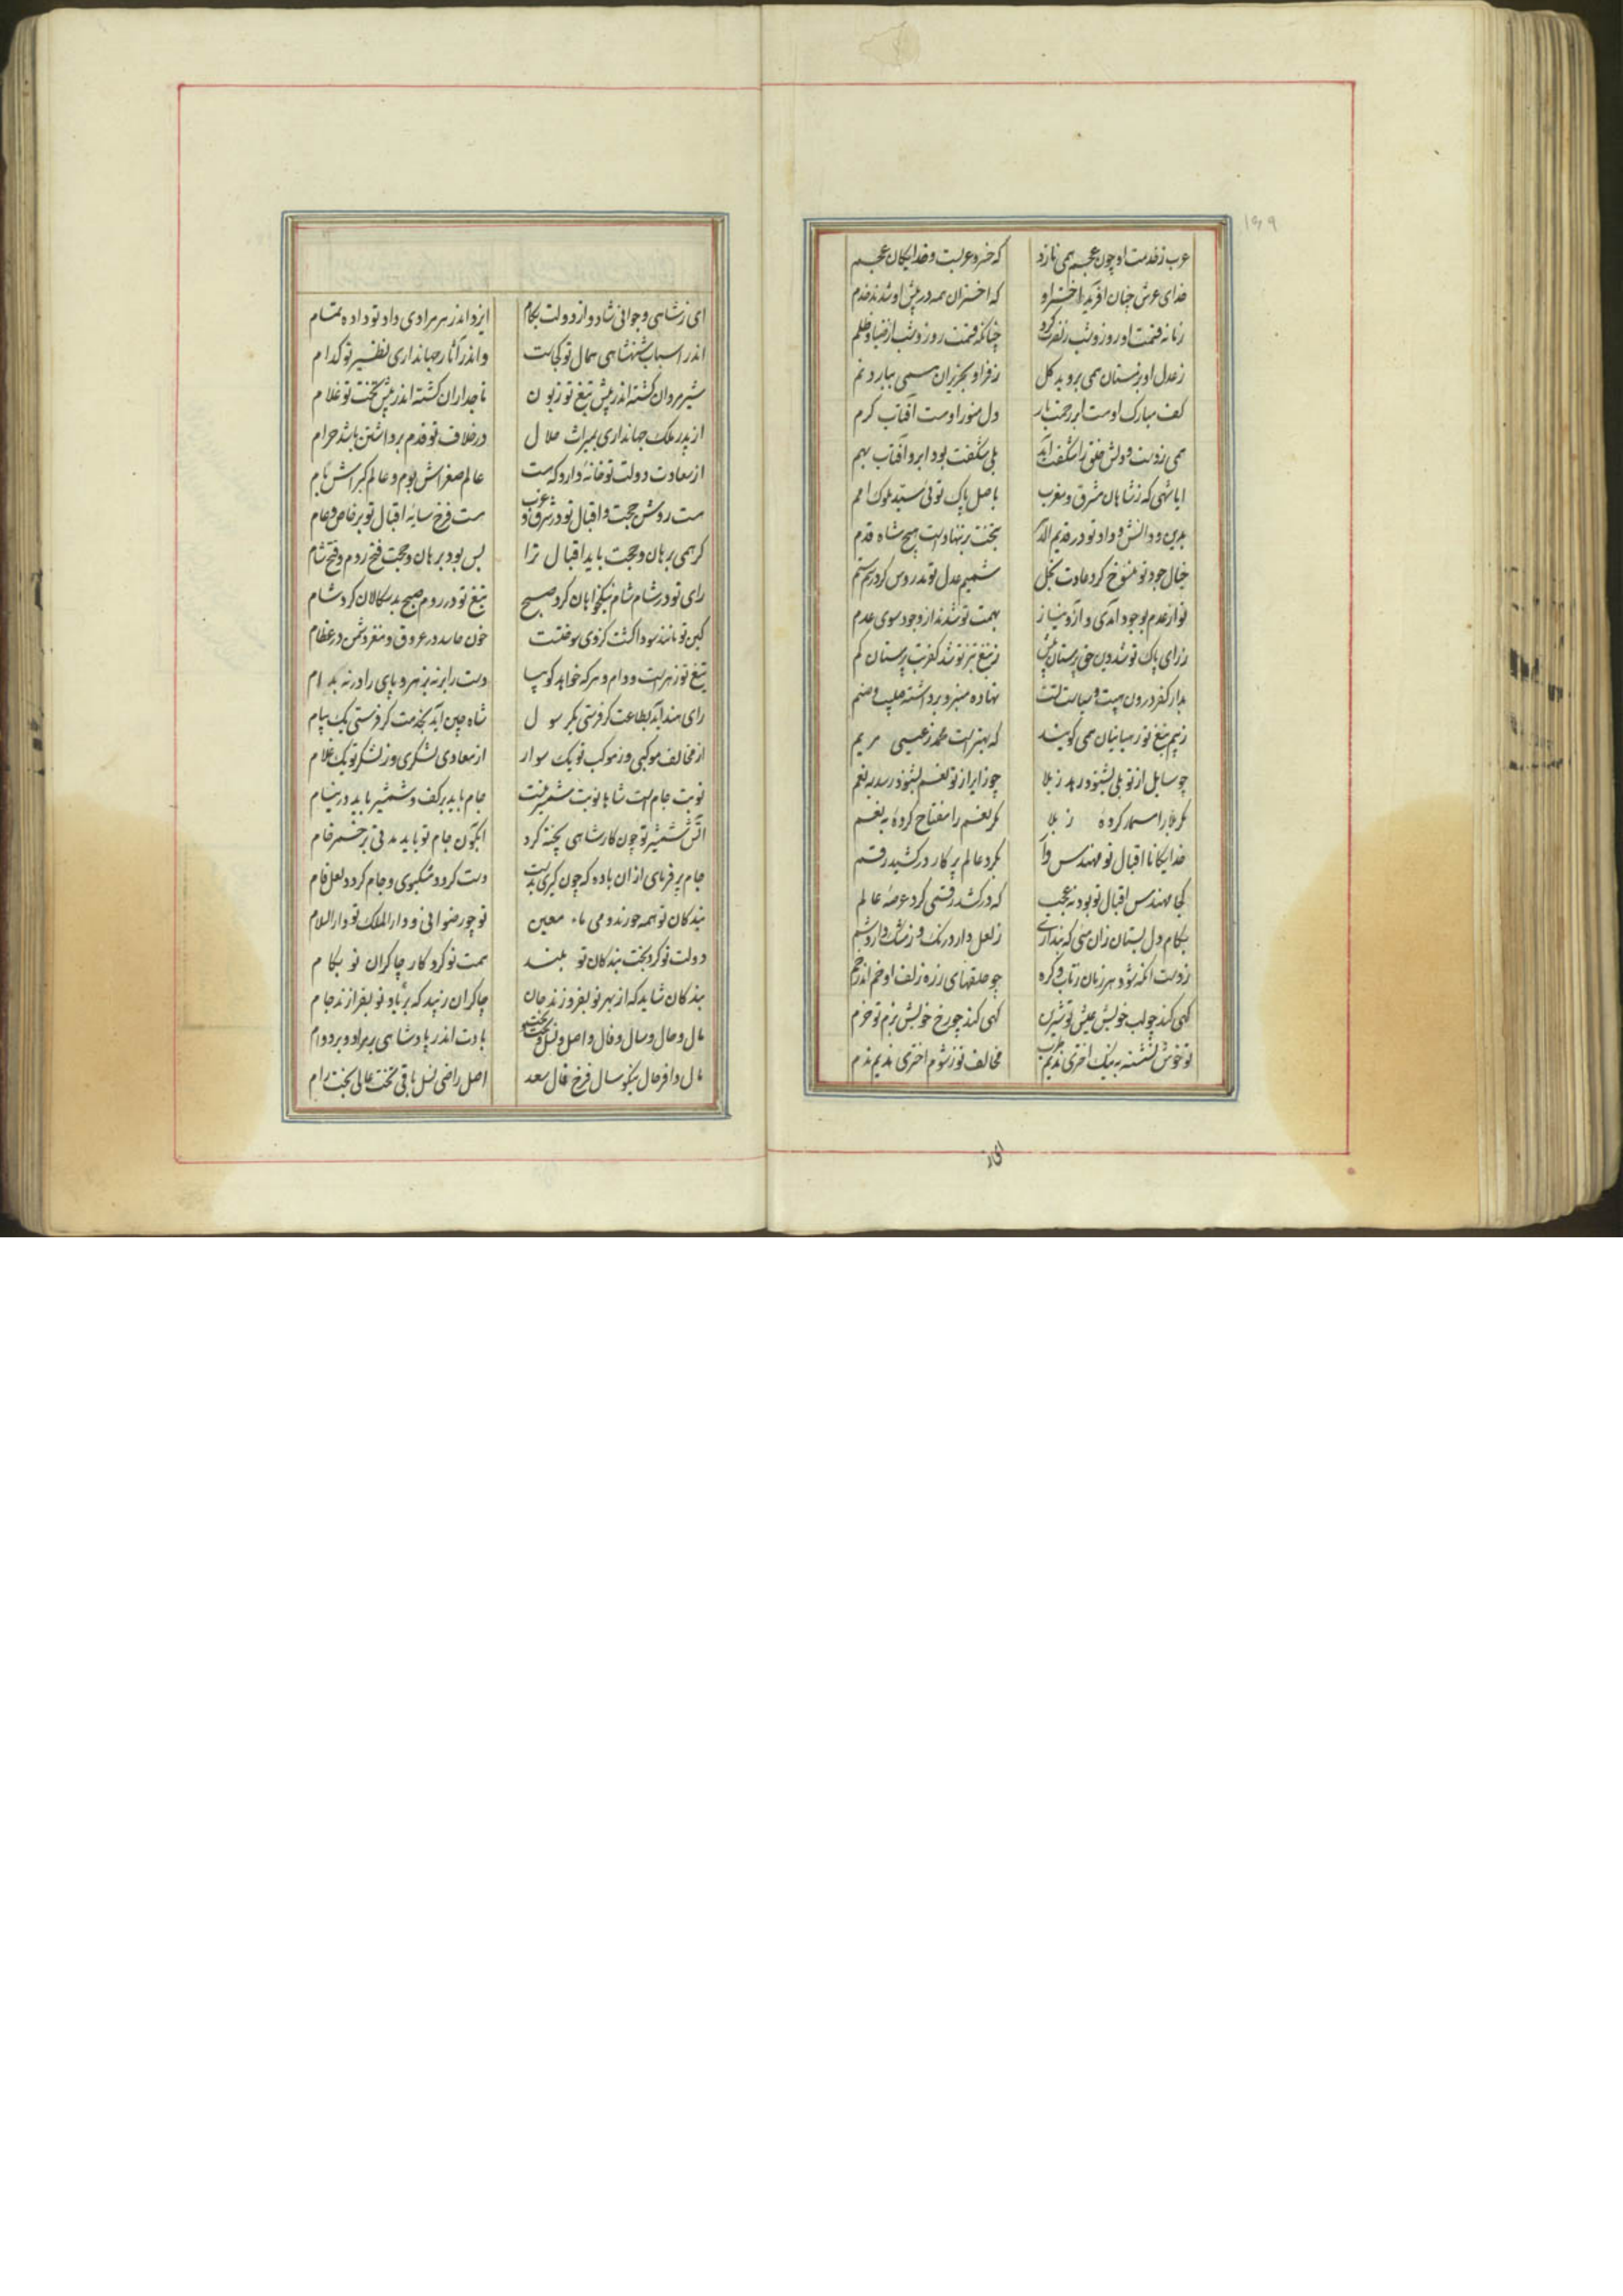 ۱۳۹
عرب ز خدمت او چون عجم همی نازد که خسرو عربست و خدایگان عجم
خدای عرش چنان آفرید اختر او که اختران همه در پیش او شدند خدم
زمانه قسمت او روز و شب ز نصرت کرد چنانکه قسمت روز و شب از ضیا و ظلم
ز عدل او بزمستان همی بروید گل ز فر او بحزیران همی ببارد نم
کف مبارک اوست ابر رحمت بار دل منور اوست آفتاب کرم
همی ز دست و دلش خلق را شگفت آید بلی شگفت بود ابر و آفتاب بهم
ایا شهی که ز شاهان مشرق و مغرب باصل پاک توئی سید ملوک امم
بدین و دانش و داد تو در قدیم الدهر بتخت بر ننهادست هیچ شاه قدم
خیال جود تو منسوخ کرد عادت بخل شمیم عدل تو مدروس کرد رسم ستم
تو از عدم بوجود آمدی و آز و نیاز بهمت تو شدند از وجود سوی عدم
ز رای پاک تو شد دین حق پرستان بیش ز تیغ تیز تو شد کفر بت پرستان کم
بدار کفر درون هیبت و سیاست تست نهاده منبر و برداشته صلیب و صنم
ز بیم تیغ تو رهبانیان همی گویند که بهترست محمد ز عیسی مریم
چو سایل از تو بلی بشنود رهد ز بلا چو زایر از تو نعم بشنود رسد به نعم
مگر بلا را مسمار کرده ز بلا مگر نعم را مفتاح کردهٔ به نعم
خدایگانا اقبال تو مهندس وار بگرد عالم پرگار در کشید رقم
کجا مهندس اقبال تو بود نه عجب که در کشد رقمی گرد عرصهٔ عالم
بکام دل بستان زان بتی که پنداری ز لعل دارد رنگ و ز مشک دارد شم
ز دست آنکه شود هر زمان ز تاب و گره چو حلقهای زره زلف او خم اندر خم
گهی کند چو لب خویش عیش تو شیرین گهی کند چو رخ خویش بزم تو خرم
تو خوش نشسته به نیک اختری ندیم طرب مخالف تو ز شوم اختری ندیم ندم
ای ز
ای ز شاهی و جوانی شاد و از دولت بکام ایزد اندر هر مرادی داد تو داده تمام
اندر اسباب شهنشاهی همال تو کجاست واندر آثار جهانداری نظیر تو کدام
شیر مردان گشته اندر پیش تیغ تو زبون تاجداران گشته اندر پیش تخت تو غلام
از پدر ملک جهانداری بمیراث حلال در خلاف تو قدم برداشتن باشد حرام
از سعادت دولت تو خانهٔ دارد که هست عالم صغراش بوم و عالم کبراش بام
هست روشن حجت و اقبال تو در شرق و غرب هست فرخ سایهٔ اقبال تو بر خاص و عام
گر همی برهان و حجت باید اقبال ترا بس بود برهان و حجت فتح روم و فتح شام
رای تو در شام شام نیکخواهان کرد صبح تیغ تو در روم صبح بدسگالان کرد شام
کین تو مانند سودا گشت کز وی سوختست خون حاسد در عروق و مغز دشمن در عظام
تیغ تو زهرست و دام و هر که خواهد گو بیا دست را بر نه بزهر و پای را در نه بدام
رای هند آید بطاعت گر فرستی یک رسول شاه چین آید بخدمت گر فرستی یک پیام
از مخالف موکبی وز موکب تو یک سوار از معادی لشکری وز لشکر تو یک غلام
نوبت جام است شاها نوبت شمشیر نیست جام باید بر کف و شمشیر باید در نیام
آتش شمشیر تو چون کار شاهی پخته کرد آبگون جام تو باید مدتی بر خمر خام
جام پر فرمای از آن باده که چون گیری بدست دست گردد مشکبوی و جام گردد لعل فام
بندگان تو همه حورند و می ماء معین تو چو رضوانی و دارالملک تو دارالسلام
دولت تو کرد بخت بندگان تو بلند همت تو کرد کار چاکران تو بکام
بندگان شاید که از بهر تو بفروزند جان چاکران زیبد که بر یاد تو بفرازند جام
مال و حال و سال و فال و اصل و نسل و تخت و بخت بادت اندر پادشاهی بر مراد و بر دوام
مال وافر حال نیکو سال فرخ فال سعد اصل راضی نسل باقی تخت عالی بخت رام